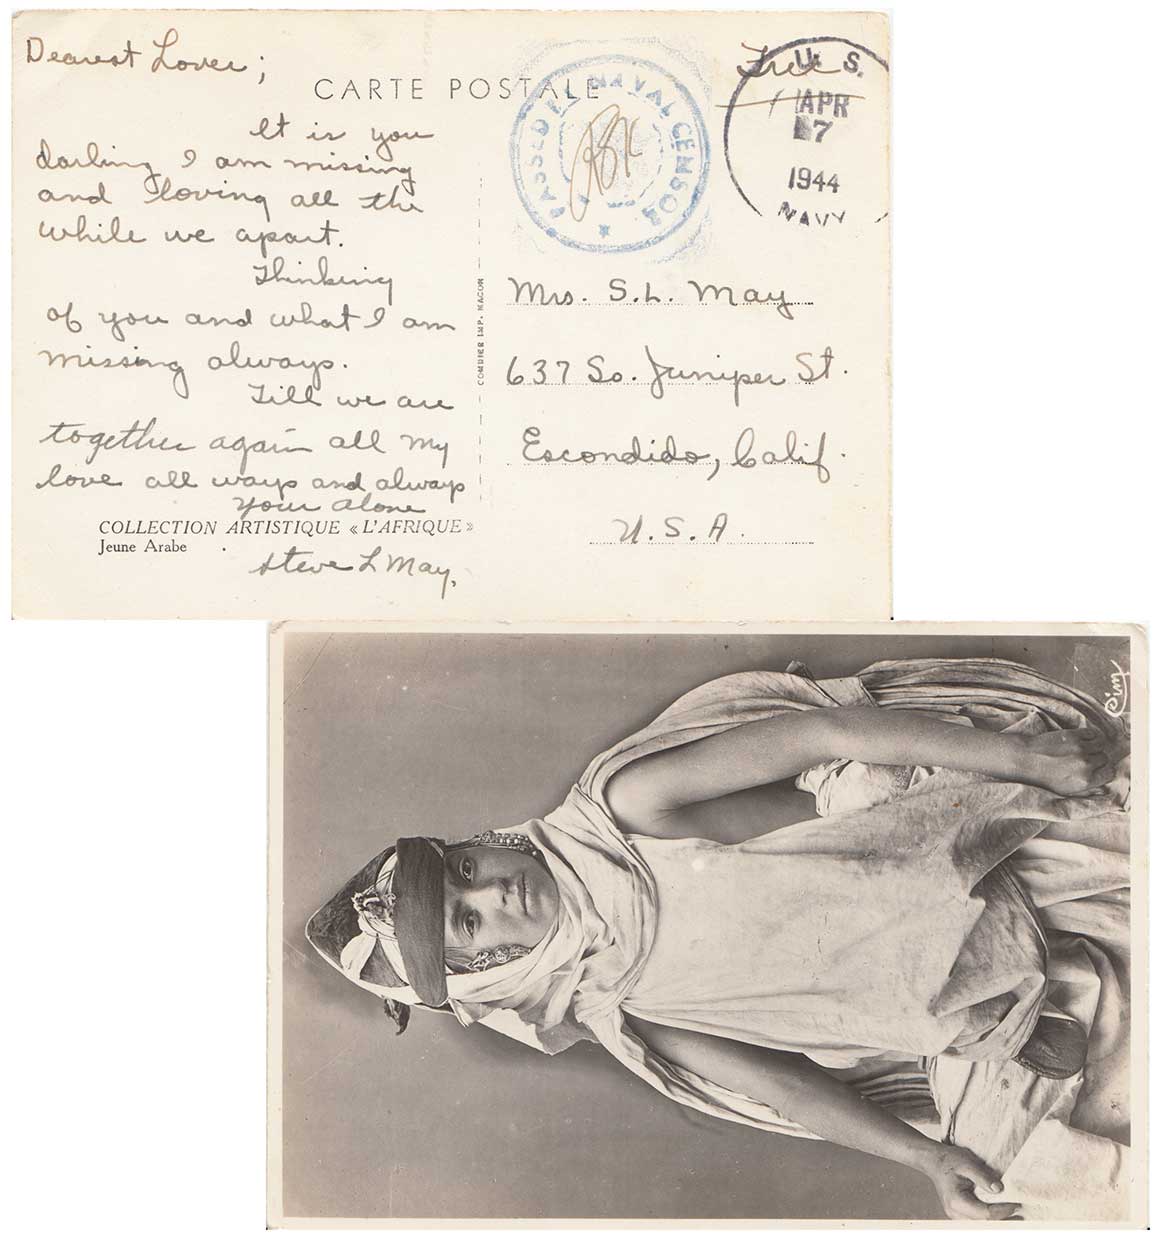 Dearest Lover;
CARTE POSTALE
It is you
darling I am missing
and loving all the
while we apart.
Thinking
of you and what I am
missing always.
Till we are
together again all my
love all ways and always
Your alone
COLLECTION ARTISTIQUE « L'AFRIQUE »
Jeune Arabe
Steve L May,
COMBIER IMP. MACON
PASSED BY NAVAL CENSOR
Free
U. S.
APR
7
1944
NAVY
Mrs. S.L. May
637 So. Juniper St.
Escondido, Calif.
U.S.A.
Cim